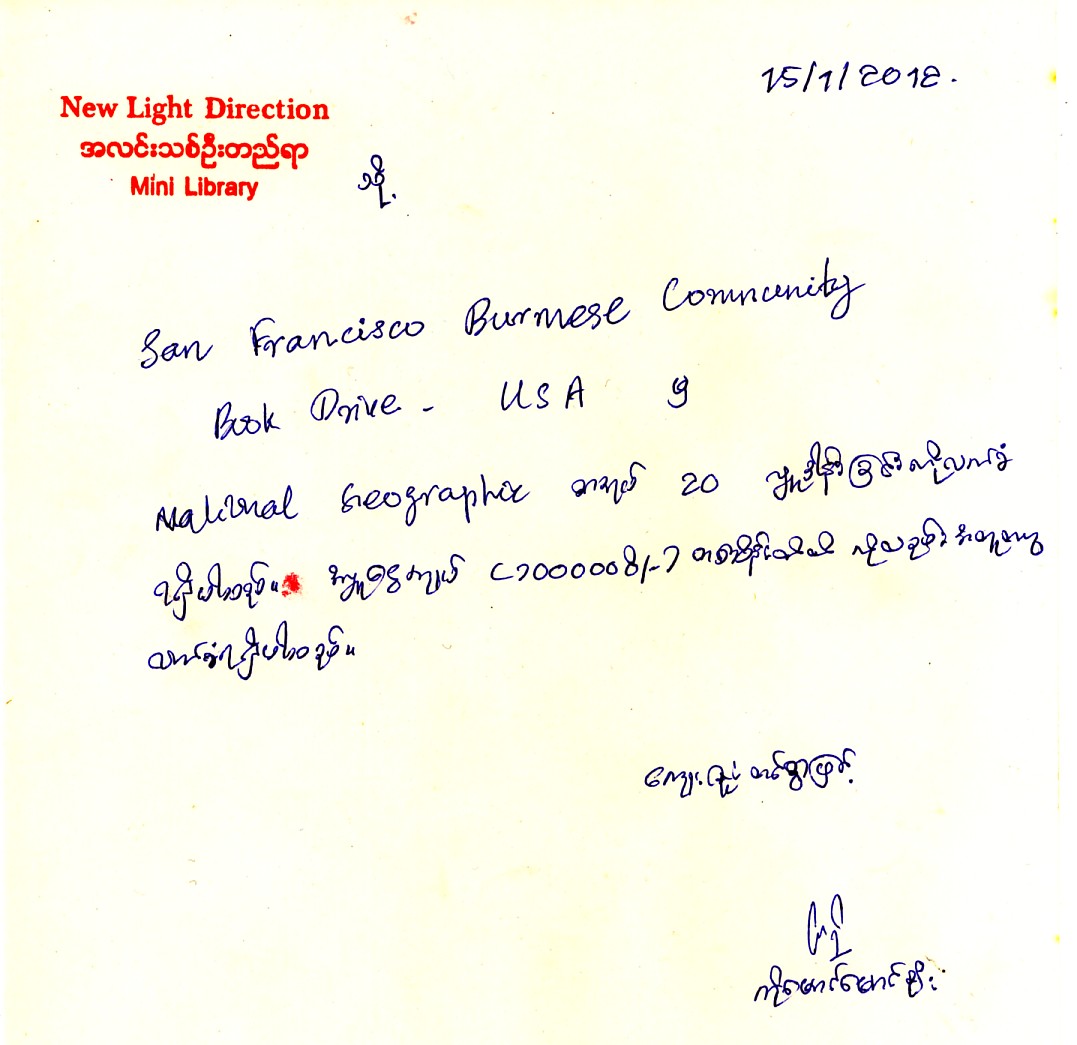 15/1/2012.
New Light Direction
အလင်းသစ်ဦးတည်ရာ
Mini Library
သို့
San Francisco Burmese Community
Book Drive - USA မှ
National Geographic စာအုပ် 20 လှူဒါန်းခြင်းကိုလက်ခံ
ရရှိပါသည်။ အလှူငွေကျပ် (၁၀၀၀၀၀ိ/-) တစ်သိန်းတိတိ ကိုလည်း
လက်ခံရရှိပါသည်။
ကျေးဇူးတင်စွာဖြင့်
ကိုမောင်မောင်စိုး